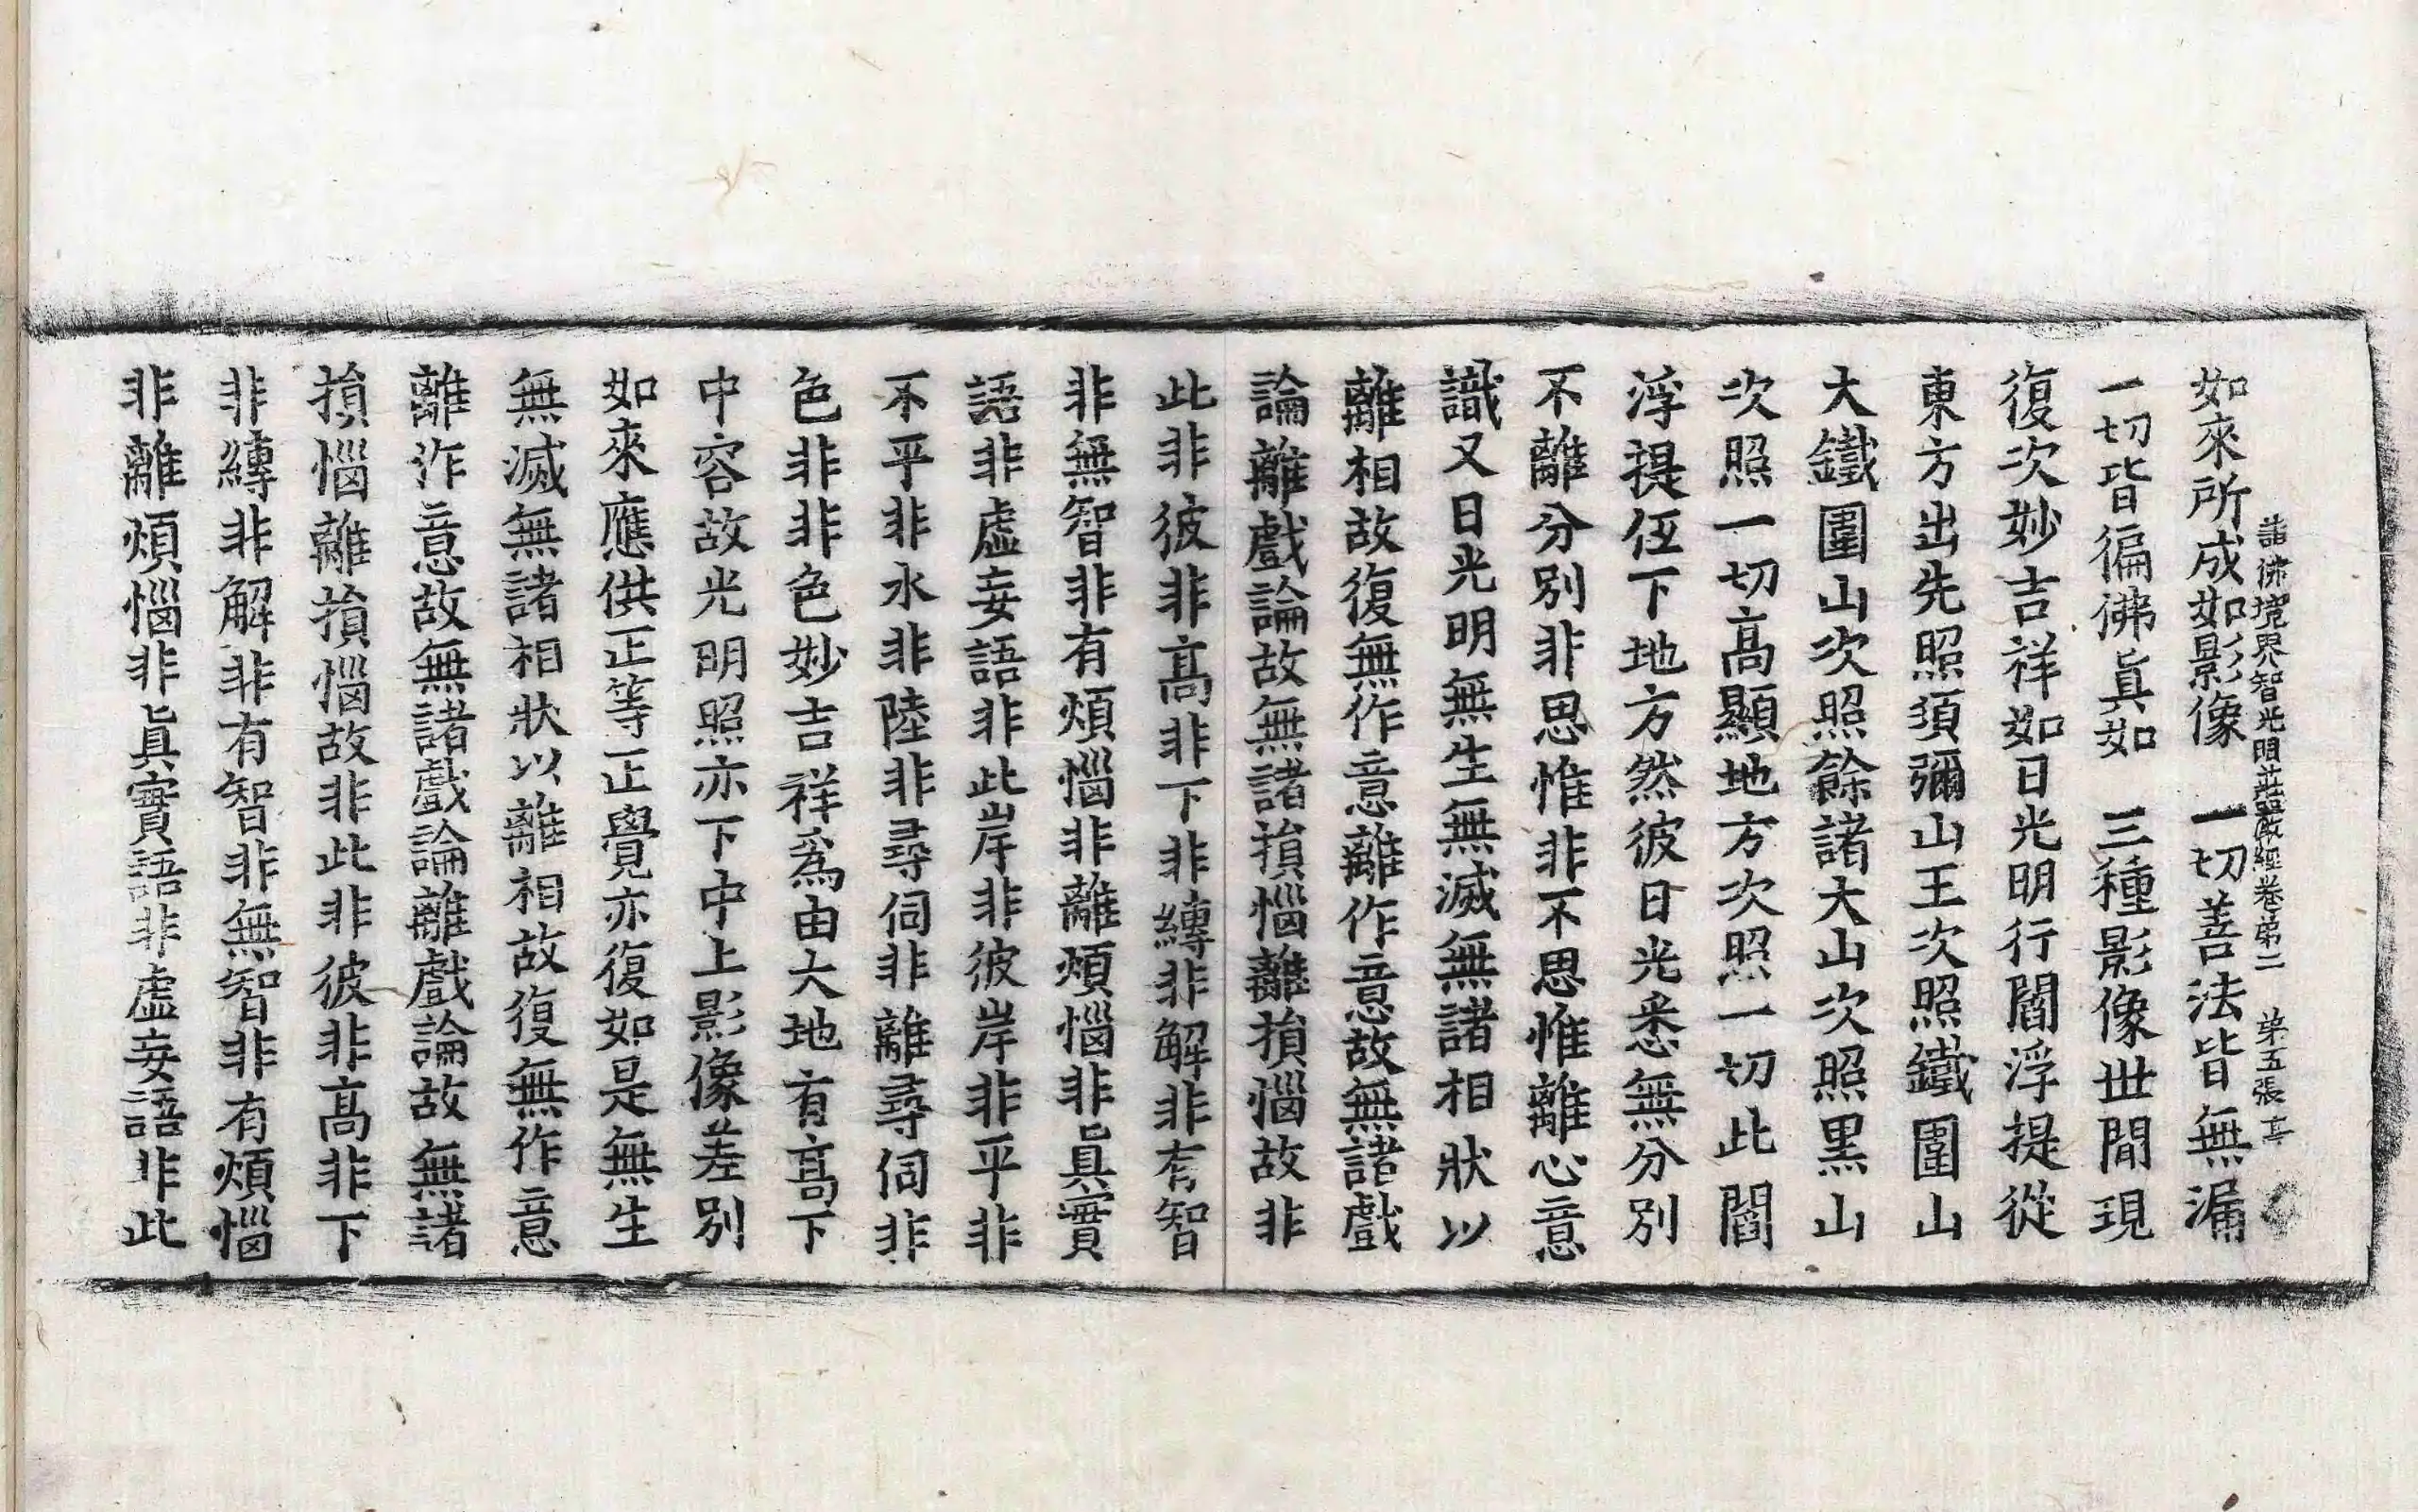 諸佛境界智光明莊嚴經卷第二　第五張　亭
如來所成如影像　一切善法皆無漏
一切皆徧佛眞如　三種影像世間現
復次妙吉祥如日光明行閻浮提從
東方出先照須彌山王次照鐵圍山
大鐵圍山次照餘諸大山次照黑山
次照一切高顯地方次照一切此閻
浮提伍下地方然彼日光悉無分別
不離分別非思惟非不思惟離心意
識又日光明無生無滅無諸相狀以
離相故復無作意離作意故無諸戲
論離戲論故無諸損惱離損惱故非
此非彼非高非下非縛非解非有智
非無智非有煩惱非離煩惱非眞實
語非虛妄語非此岸非彼岸非平非
不平非水非陸非尋伺非離尋伺非
色非非色妙吉祥爲由大地有高下
中容故光明照亦下中上影像差別
如來應供正等正覺亦復如是無生
無滅無諸相狀以離相故復無作意
離作意故無諸戲論離戲論故無諸
損惱離損惱故非此非彼非高非下
非縛非解非有智非無智非有煩惱
非離煩惱非眞實語非虛妄語非此